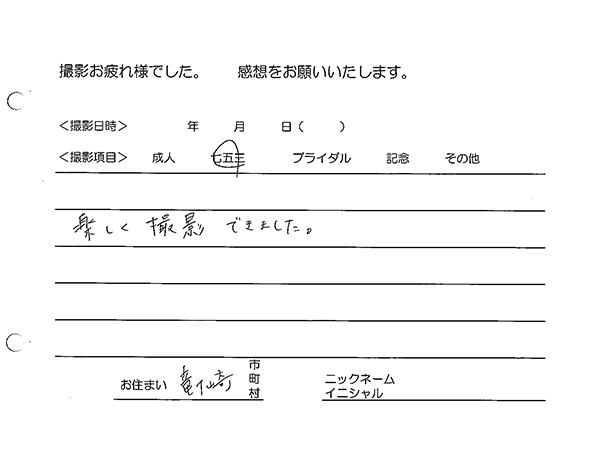 撮影お疲れ様でした。 感想をお願いいたします。
＜撮影日時＞ 年 月 日（ ）
＜撮影項目＞ 成人 七五三 ブライダル 記念 その他
楽しく 撮影 できました。
お住まい 竜仙奇 市町村
ニックネーム
イニシャル